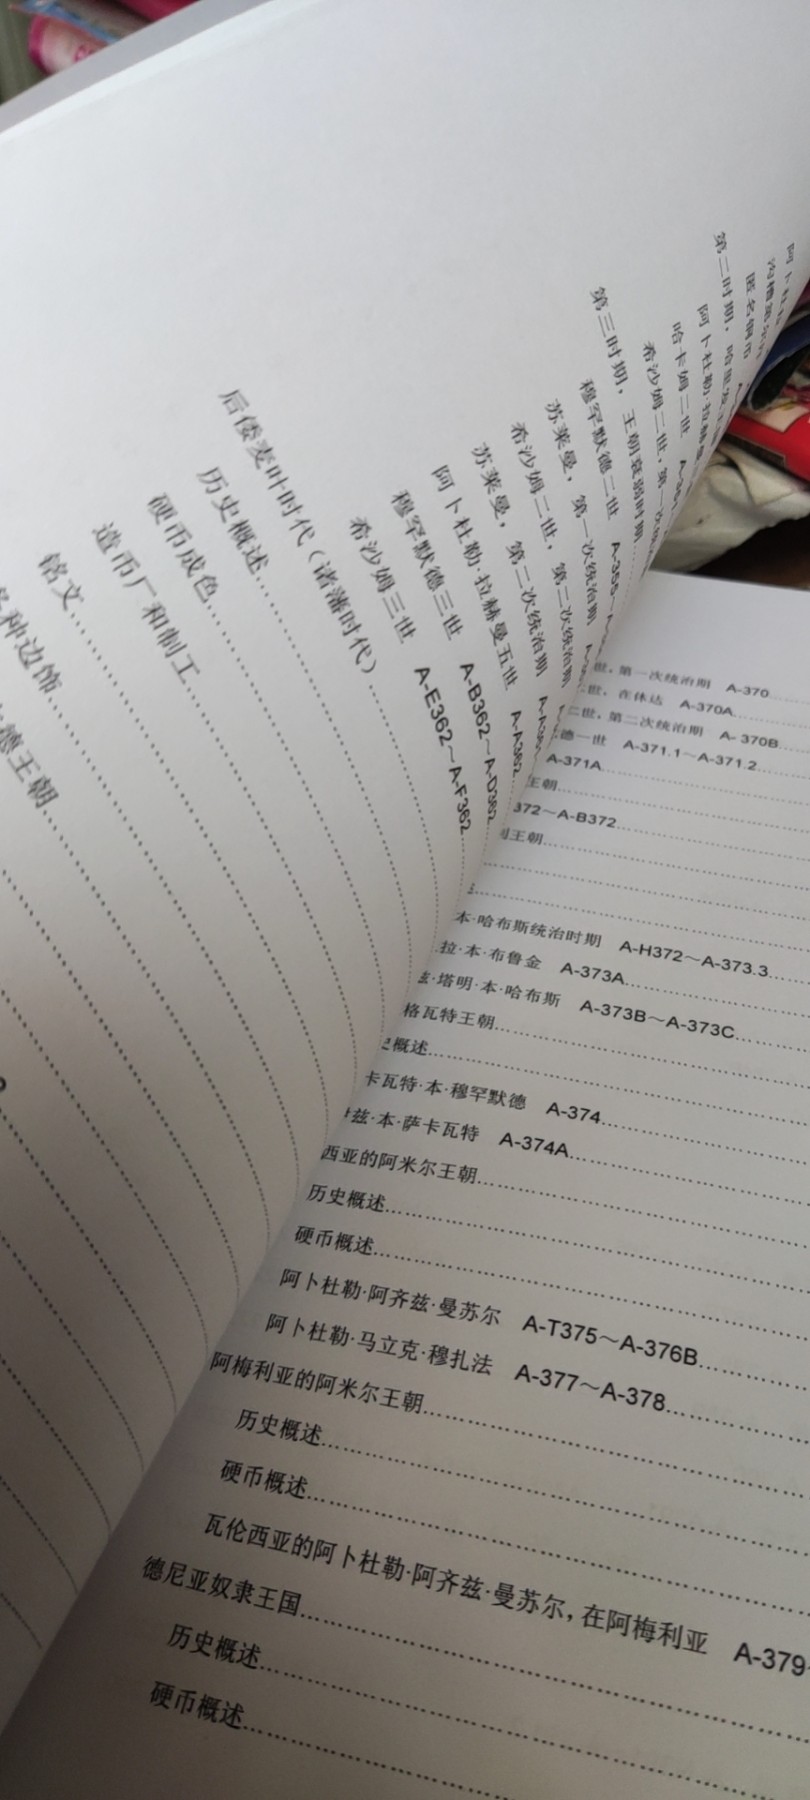 阿卜杜拉
匿名铜币
第二时期，哈里发王
阿卜杜勒·拉赫曼
哈卡姆二世
希沙姆二世，第一次统治
第三时期，王朝衰弱时期
穆罕默德二世 A-355～A-
苏莱曼，第一次统治期
希沙姆二世，第二次统治期
苏莱曼，第二次统治期
阿卜杜勒·拉赫曼五世 A-A362
穆罕默德三世 A-B362～A-D362
希沙姆三世 A-E362～A-F362
后倭麦叶时代（诸藩时代）
历史概述
硬币成色
造币厂和制工
铭文
各种边饰
德王朝
世，第一次统治期 A-370
世，在休达 A-370A
二世，第二次统治期 A-370B
德一世 A-371.1～A-371.2
A-371A
王朝
372～A-B372
王朝
本·哈布斯统治时期 A-H372～A-373.3
拉·本·布鲁金 A-373A
兹·塔明·本·哈布斯 A-373B～A-373C
格瓦特王朝
史概述
卡瓦特·本·穆罕默德 A-374
兹·本·萨卡瓦特 A-374A
西亚的阿米尔王朝
历史概述
硬币概述
阿卜杜勒·阿齐兹·曼苏尔 A-T375～A-376B
阿卜杜勒·马立克·穆扎法 A-377～A-378
阿梅利亚的阿米尔王朝
历史概述
硬币概述
瓦伦西亚的阿卜杜勒·阿齐兹·曼苏尔，在阿梅利亚 A-379
德尼亚奴隶王国
历史概述
硬币概述